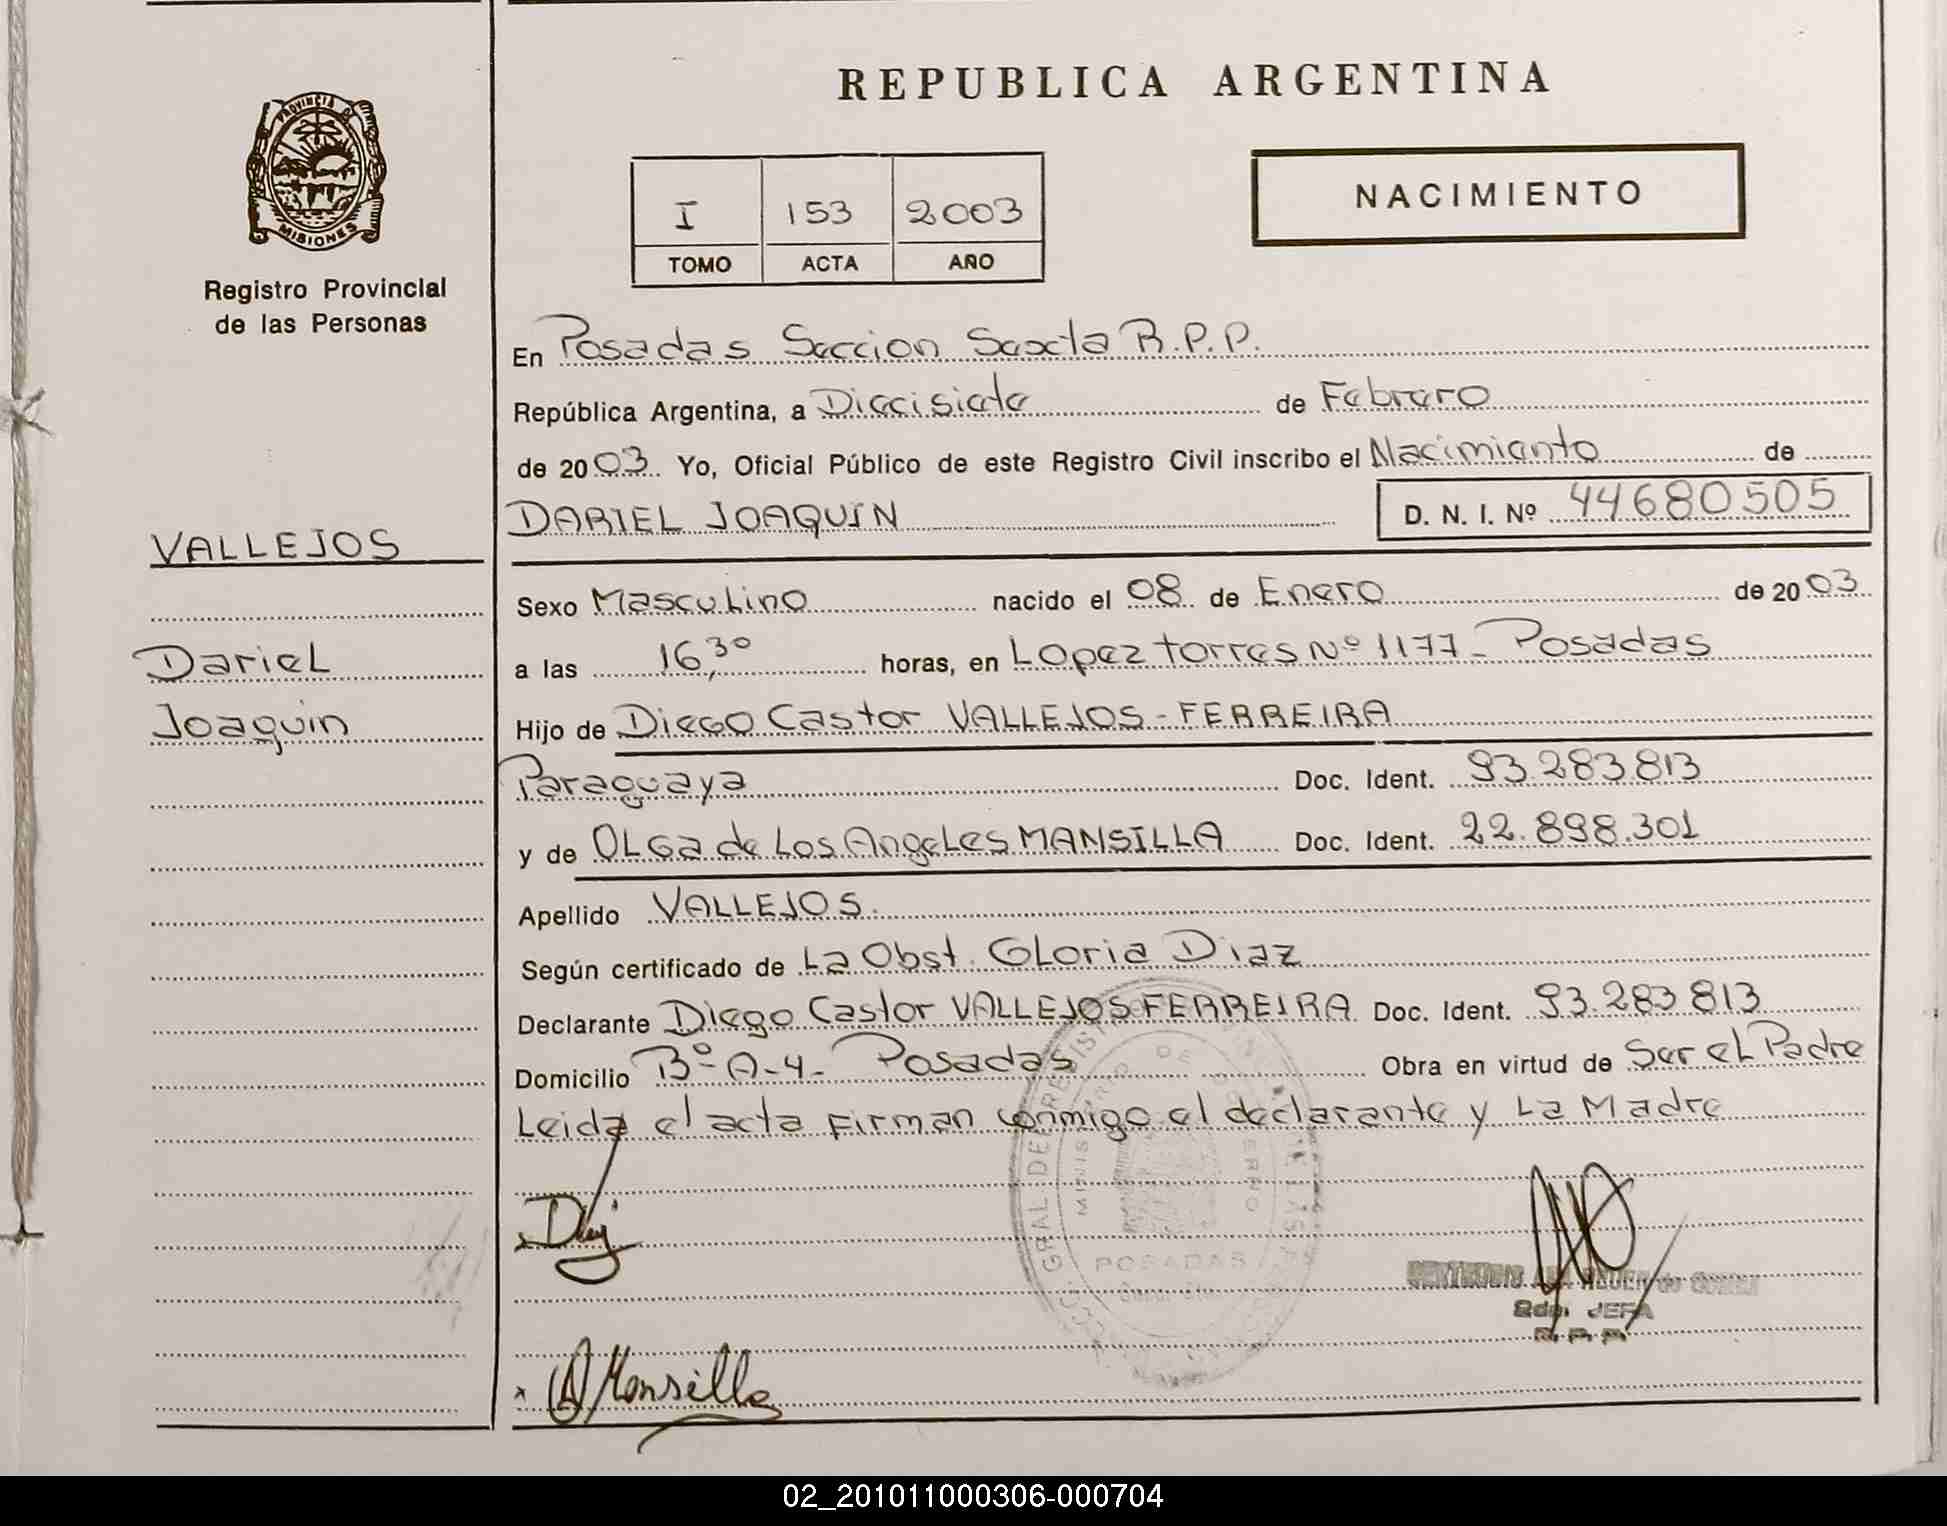 REPUBLICA ARGENTINA
PROVINCIA DE
MISIONES
Registro Provincial
de las Personas
I 153 2003
TOMO ACTA AÑO
NACIMIENTO
En Posadas Seccion Sexta R.P.P.
República Argentina, a Diecisiete de Febrero
de 2003. Yo, Oficial Público de este Registro Civil inscribo el Nacimiento de
DARIEL JOAQUIN D. N. I. Nº 44680505
VALLEJOS
Dariel
Joaquin
Sexo Masculino nacido el 08 de Enero de 2003
a las 16,30 horas, en Lopez torres Nº 1177- Posadas
Hijo de Diego Castor VALLEJOS-FERREIRA
Paraguaya Doc. Ident. 93.283.813
y de OLGa de Los AngeLes MANSILLA Doc. Ident. 22.898.301
Apellido VALLEJOS.
Según certificado de La Obst. GLoria Diaz
Declarante Diego Castor VALLEJOS FERREIRA Doc. Ident. 93.283.813
Domicilio Bº A-4- Posadas Obra en virtud de Ser el Padre
Leida el acta Firman conmigo el declarante y La Madre
MINISTERIO DE GOBIERNO
POSADAS
Mansilla
JEFA
R.P.P.
02_201011000306-000704